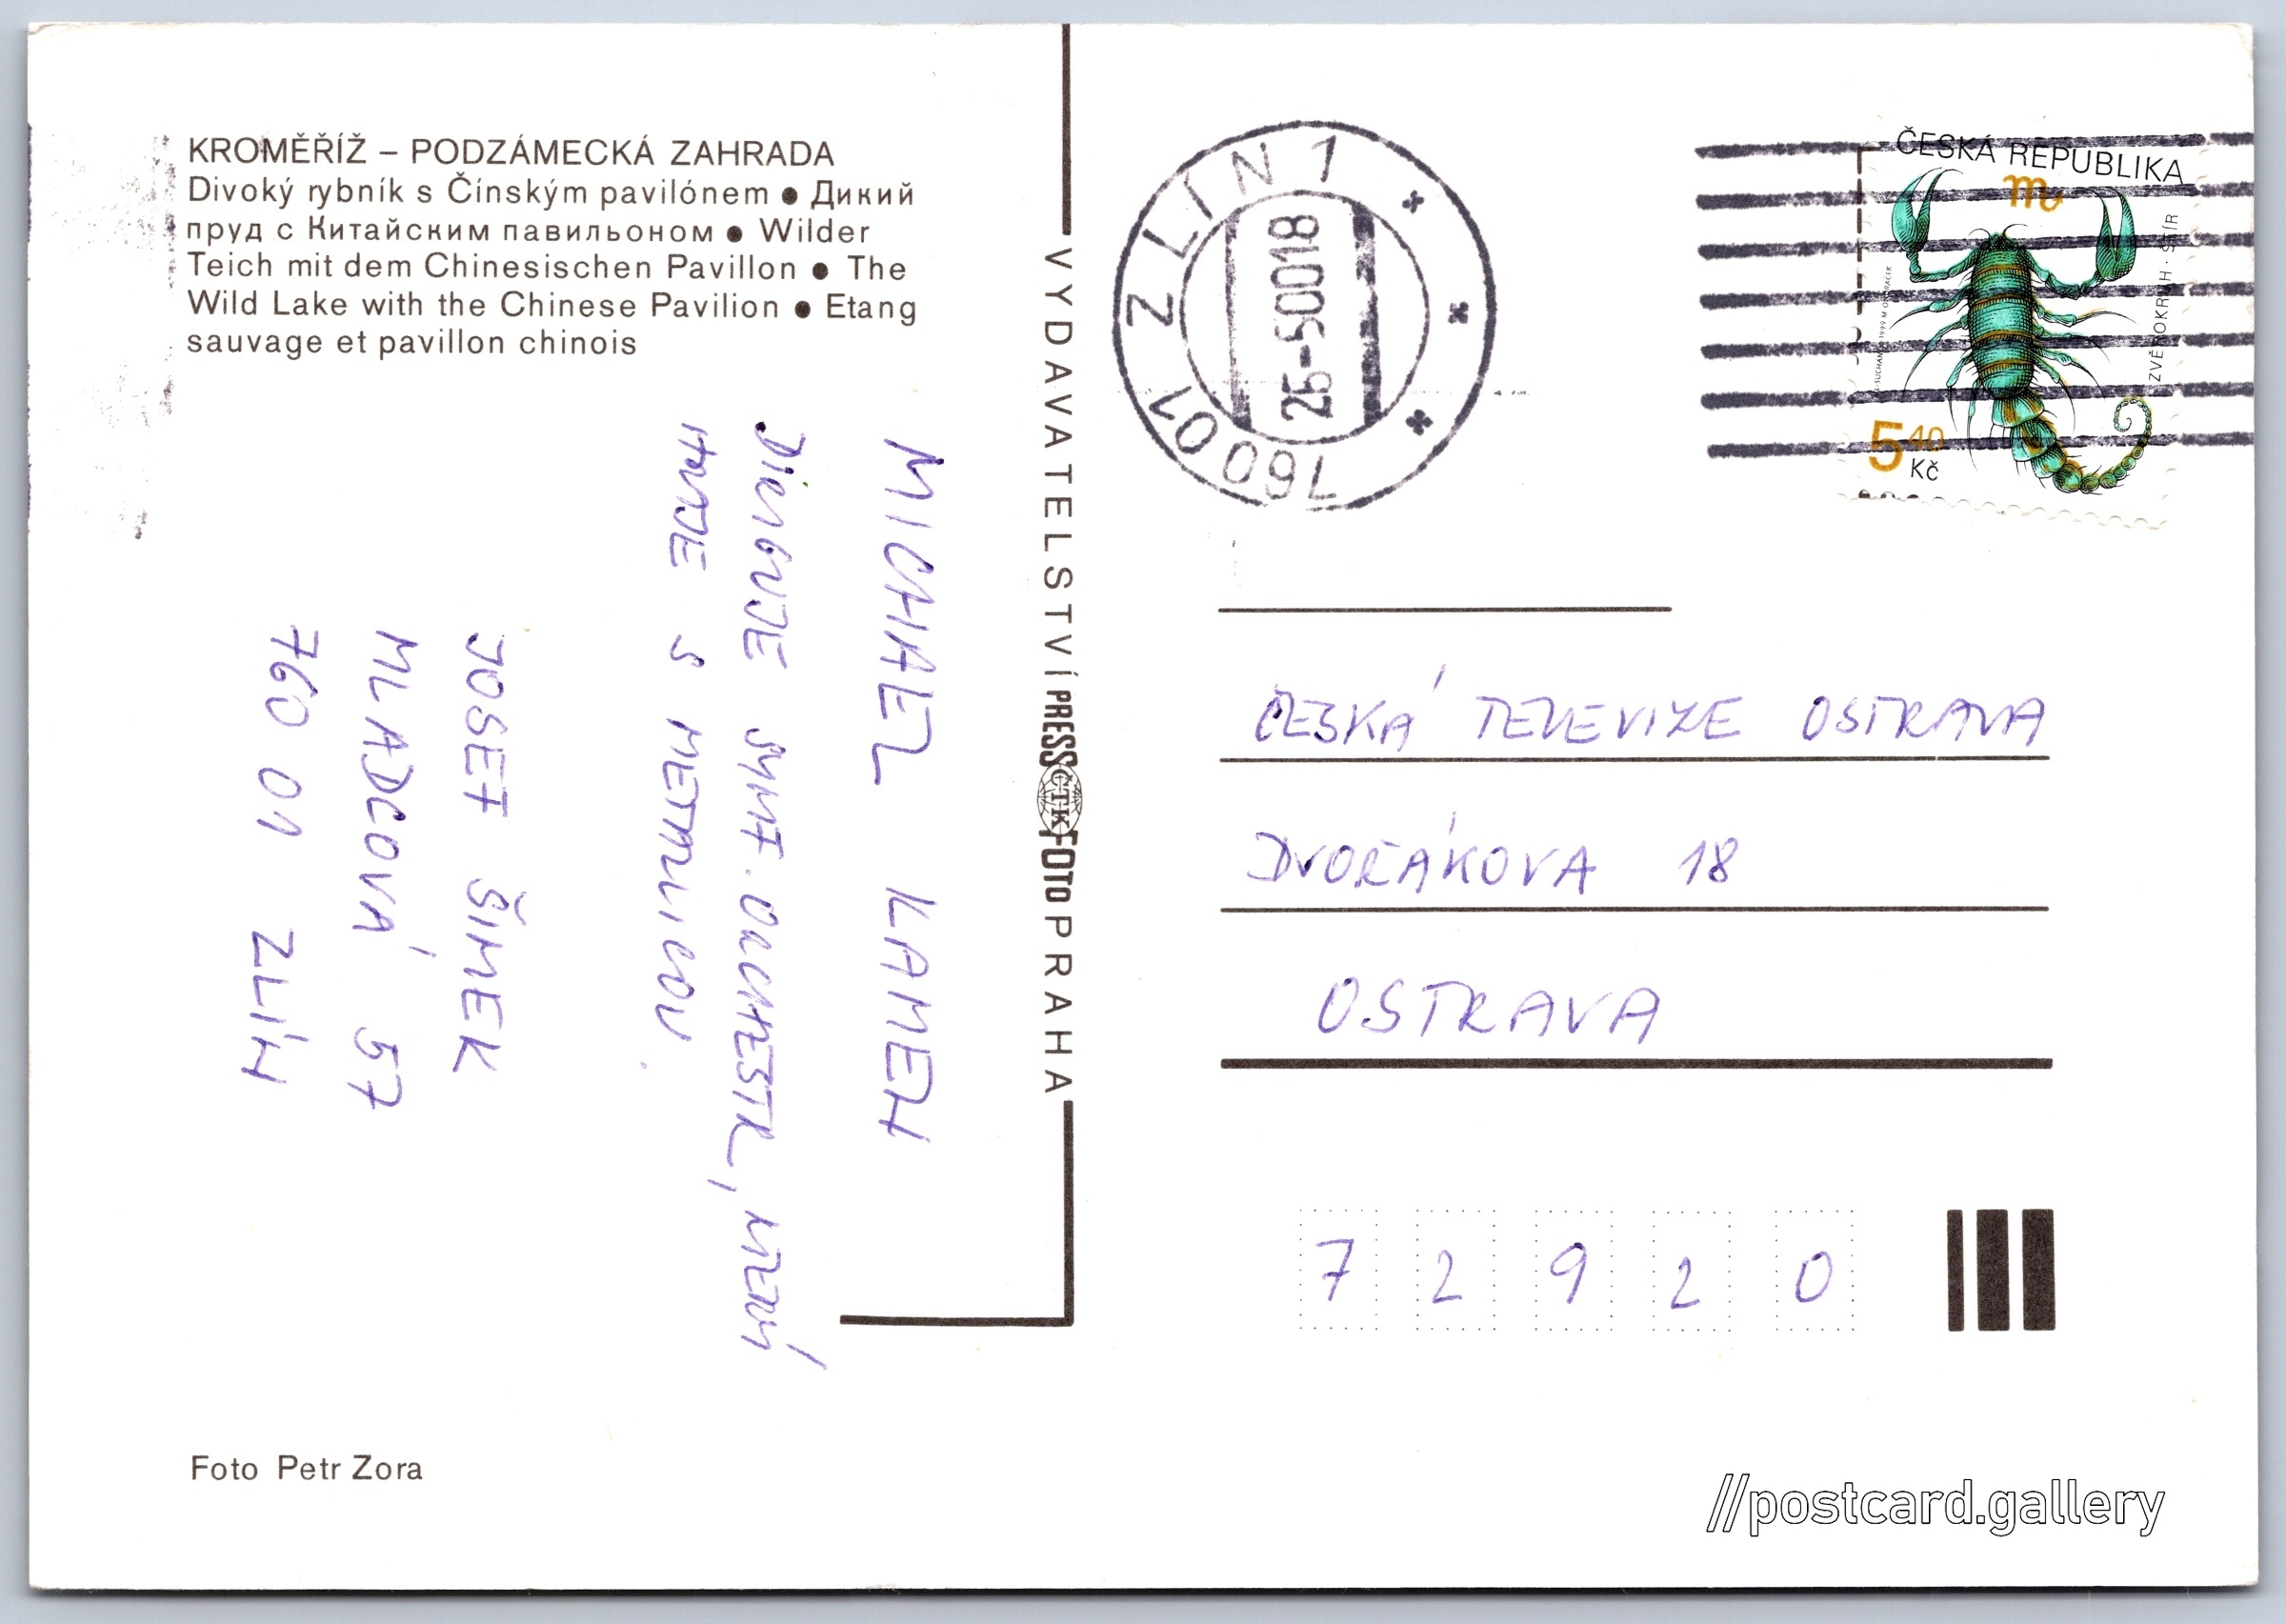 KROMĚŘÍŽ – PODZÁMECKÁ ZAHRADA
Divoký rybník s Čínským pavilónem ● Дикий
пруд с Китайским павильоном ● Wilder
Teich mit dem Chinesischen Pavillon ● The
Wild Lake with the Chinese Pavilion ● Etang
sauvage et pavillon chinois
MICHAEL KAMEN
DIRIGUJE SYMF. ORCHESTR, KTERÝ
HRAJE S METALICOU.
JOSEF ŠIMEK
MLADCOVÁ 57
760 01 ZLÍN
Foto Petr Zora
VYDAVATELSTVÍ PRESSFOTO PRAHA
ČTK
760 01 ZLÍN 1
26-50018
ČESKÁ REPUBLIKA
ZVĚROKRUH · ŠTÍR
5 40 Kč
ČESKÁ TELEVIZE OSTRAVA
DVOŘÁKOVA 18
OSTRAVA
7 2 9 2 0
//postcard.gallery